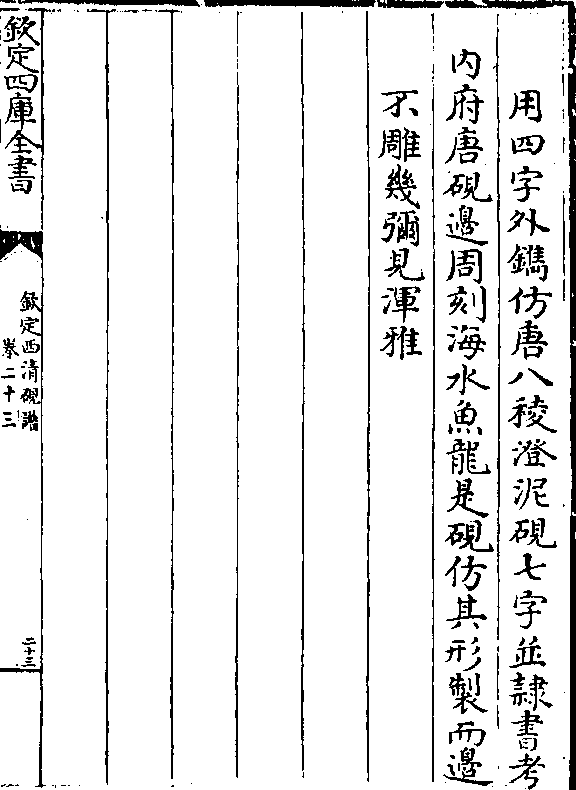 用四字外鐫仿唐八稜澄泥硯七字並隷書考
内府唐硯邉周刻海水魚龍是硯仿其形製而邉
不雕幾彌見渾雅
欽定四庫全書
欽定西清硯譜
卷二十三
二十三